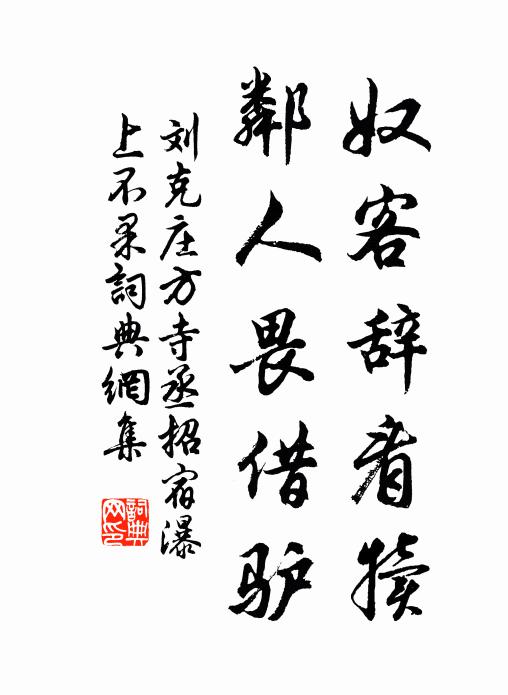 奴客辞看犊
鄰人畏借驴
刘克庄方寺丞招宿瀑
上不果詞典網集
詞典网印